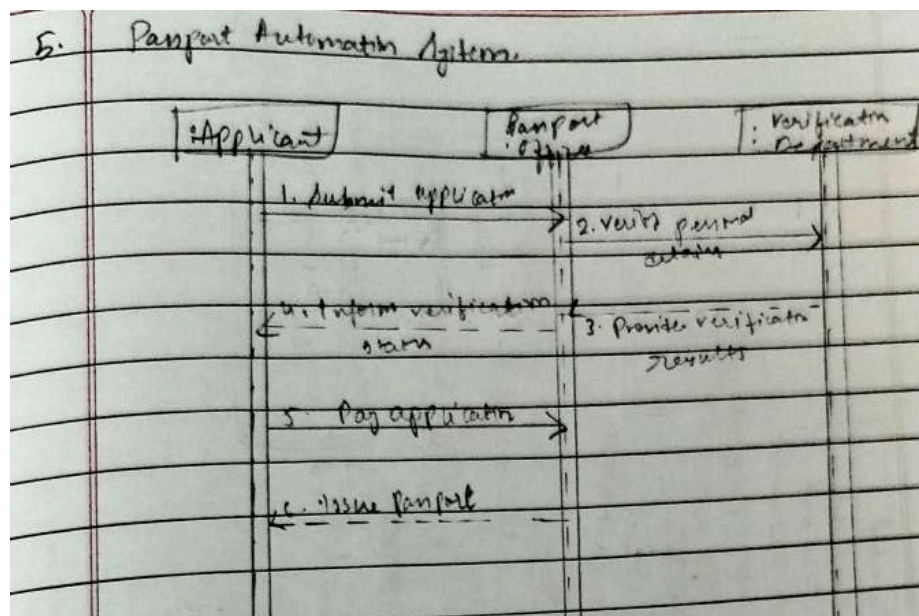 5. Passport Automatin System.
:Applicant
Passport
: Officer
Verificatn
: Department
1. Submit applicatn
2. Verify personal
details
4. Inform verification
status
3. Provites verificatn
results
5. Pay applicatin
6. Issue Passport